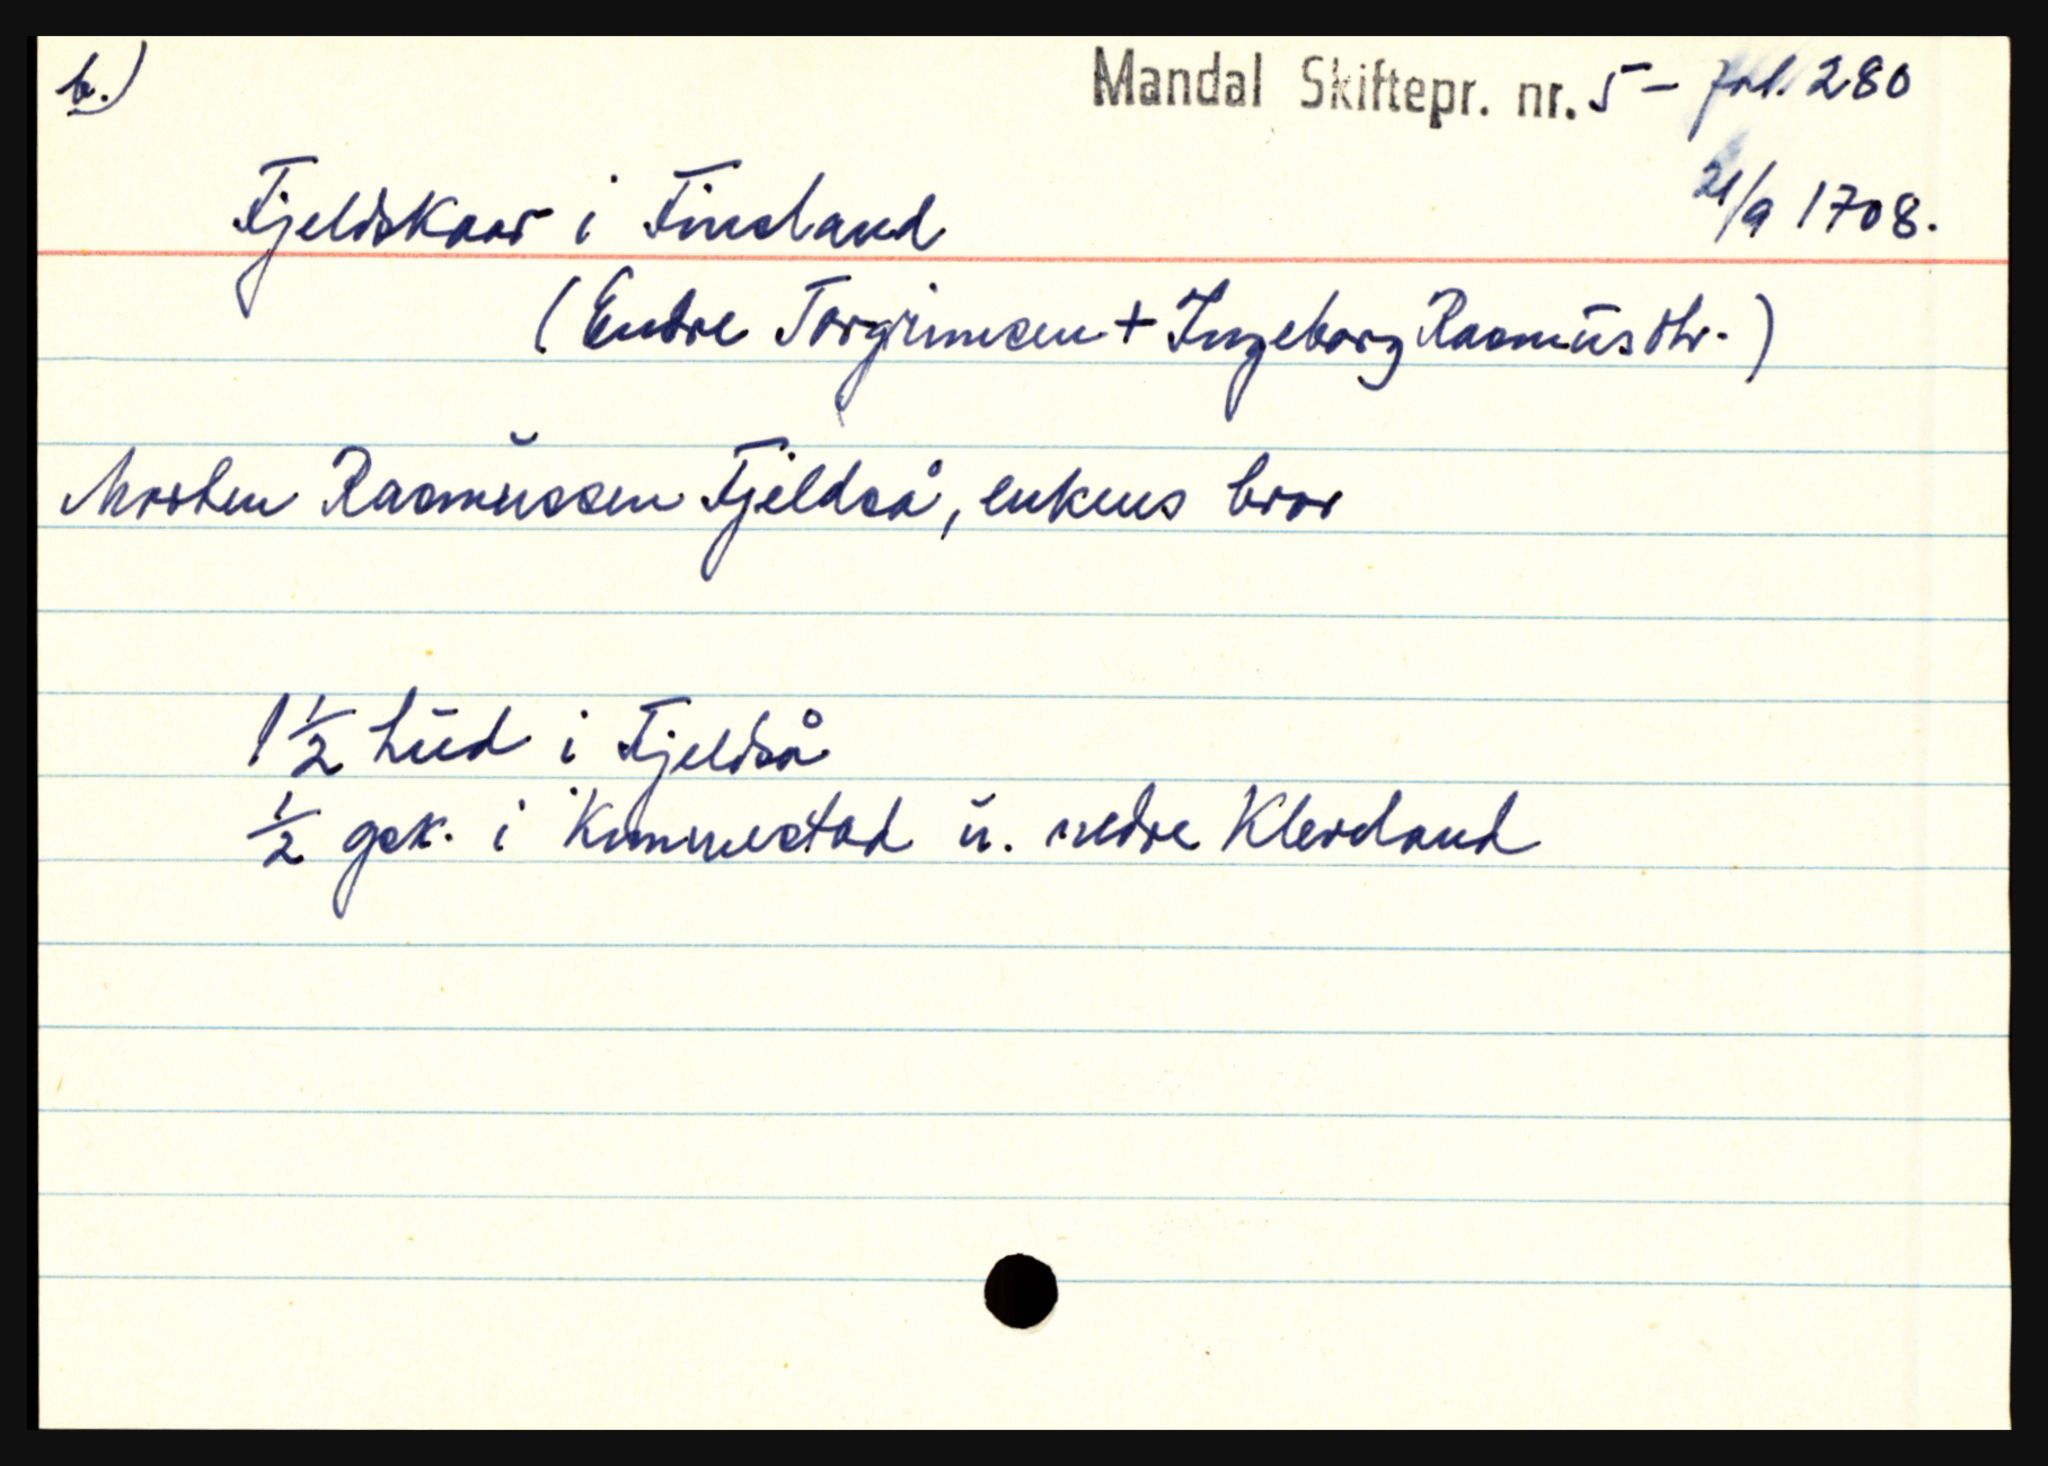 b.) Mandal Skiftepr. nr. 5 - fol. 280
Fjeldskaar i Finsland 21/9 1708.
(Endre Torgrimsen + Ingeborg Rasmusdtr.)
Morten Rasmussen Fjeldså, enkens bror
1 1/2 hud i Fjeldså
1/2 gsk. i Kimmestad u. nedre Kleveland